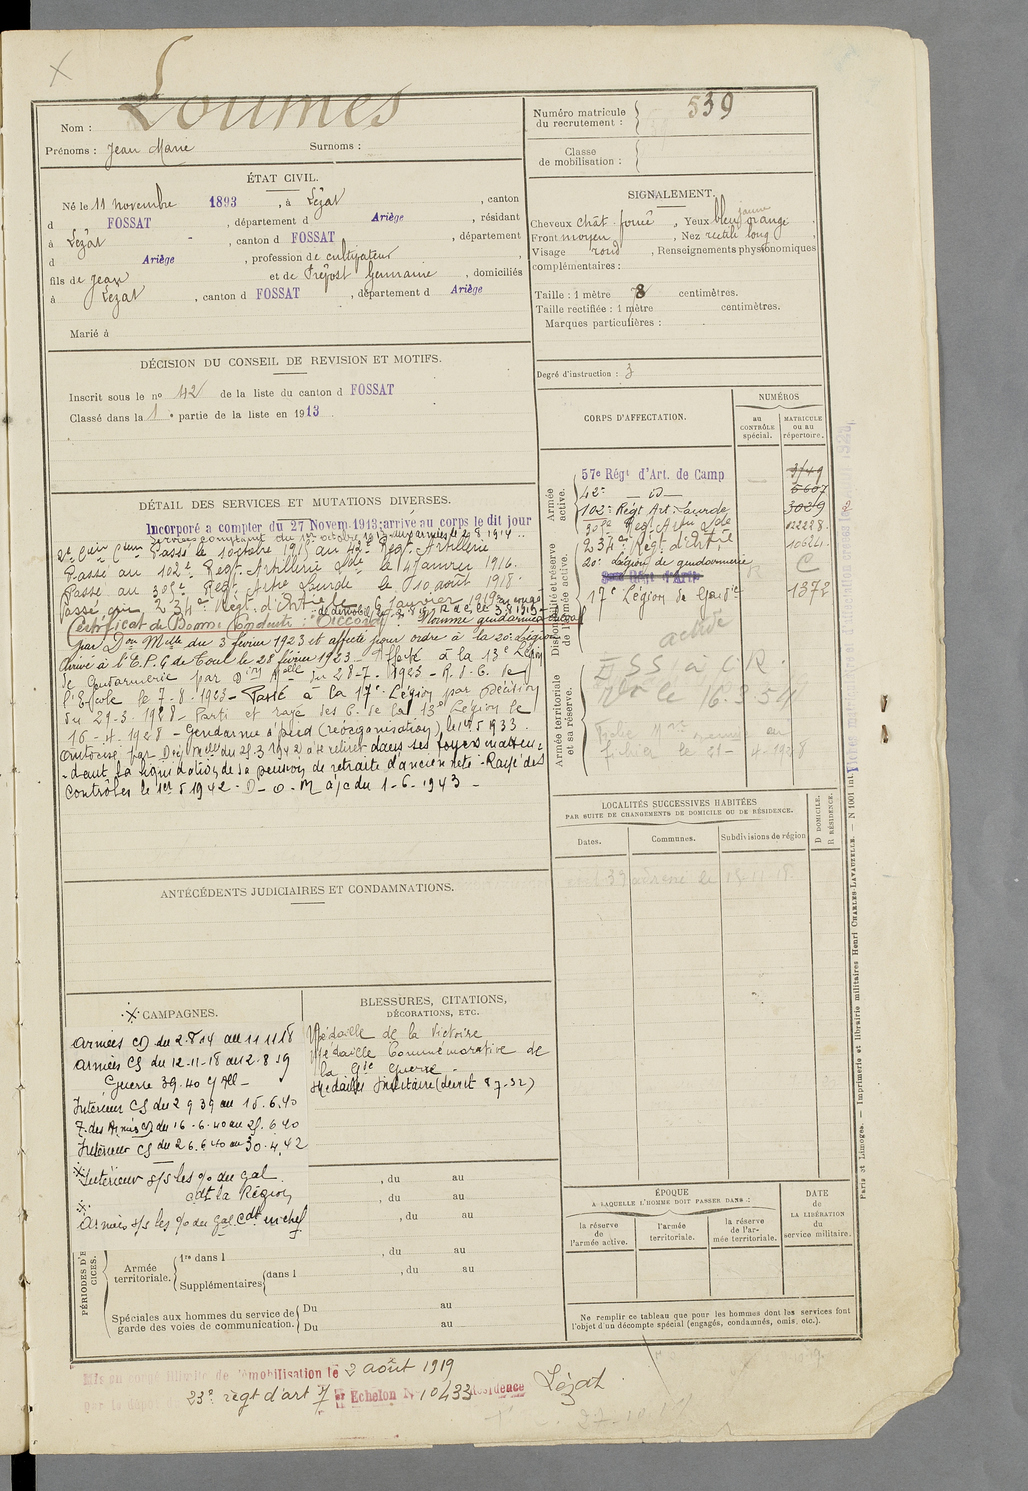 Loumes
Nom :
Prénoms : Jean Marie Surnoms :
Numéro matricule du recrutement : 539
Classe de mobilisation :
ÉTAT CIVIL.
Né le 11 novembre 1893, à Lézat, canton
d FOSSAT, département d Ariège, résidant
à Lézat, canton d FOSSAT, département
d Ariège, profession de cultivateur
fils de Jean et de Prépost Germaine, domiciliés
à Lezat, canton d FOSSAT, département d Ariège
Marié à
SIGNALEMENT.
Cheveux chât. foncé, Yeux bleu jaune orangé
Front moyen, Nez rectil. long
Visage rond, Renseignements physionomiques
complémentaires :
Taille : 1 mètre 78 centimètres.
Taille rectifiée : 1 mètre centimètres.
Marques particulières :
Degré d'instruction : 3
DÉCISION DU CONSEIL DE REVISION ET MOTIFS.
Inscrit sous le no 42 de la liste du canton d FOSSAT
Classé dans la 1e partie de la liste en 1913
DÉTAIL DES SERVICES ET MUTATIONS DIVERSES.
Incorporé a compter du 27 Novem. 1913; arrivé au corps le dit jour
Services comptant du 1er octobre 1913 aux armées le 2 8 1914
Passé le 1 octobre 1915 au 42e Régt Artillerie
Passé au 102e Régt. Artillerie Lde le 4 Janvier 1916.
Passé au 305e Regt. Artie Lourde le 10 août 1918.
Passé au 234e Régt. d'Artie le Janvier 1919
Certificat de Bonne Conduite : "Accordé" Nommé gendarme
par Don Mlle du 3 février 1923 et affecté pour ordre à la 20e Légion
Arrivé à l'E.P.G de Toul le 28 février 1923 - Affecté à la 13e Légion
de Gendarmerie par Don Mlle du 28-7-1923 - R.D.C. de
l'École le 7-8-1923 - Passé à la 17e Légion par Décision
du 21-3-1928 - Parti et rayé des C. de la 13e Légion le
16-4-1928 - Gendarme à pied (réorganisation), le 1er 5 1933.
Autorisé par Don Mlle du 25-3 1942 à se retirer dans ses foyers en atten-
-dant la liquidation de sa pension de retraite d'ancienneté - Rayé des
Contrôles le 1er 5 1942 - D-O-M à/c du 1-6-1943 -
CORPS D'AFFECTATION.
NUMÉROS
au CONTRÔLE spécial.
MATRICULE ou au répertoire.
Armée active.
57e Régt d'Art. de Camp 3749
42e _ d° _ 5607
102e Régt Art. Lourde 3029
305e Reg. Artie Lde 12228
Disponibilité et réserve de l'armée active.
234e Régt. d'Artie 10624
20e Légion de gendarmerie C
17e Légion de Gendie 1372
active
Armée territoriale et sa réserve.
le 16.3.54
LOCALITÉS SUCCESSIVES HABITÉES
PAR SUITE DE CHANGEMENTS DE DOMICILE OU DE RÉSIDENCE.
Dates. Communes. Subdivisions de région D DOMICILE. R RÉSIDENCE.
ANTÉCÉDENTS JUDICIAIRES ET CONDAMNATIONS.
CAMPAGNES.
Armées CD du 2.8 14 au 11 11 18
Armées CS du 12-11-18 au 2.8 19
Guerre 39.40 c/ All -
Intérieur CS du 2 9 39 au 15.6.40
Z. des Armées CD du 16-6-40 au 25.6 40
Intérieur CS du 26.6.40 au 30.4.42
Intérieur s/s les % du Gal
cdt la Région
Armées s/s les % du Gal Cdt en chef
BLESSURES, CITATIONS,
DÉCORATIONS, ETC.
Médaille de la Victoire
Médaille Commémorative de
la Gde Guerre -
Médaille Militaire (décret 8 7-32)
, du au
, du au
, du au
PÉRIODES D'EXERCICES.
Armée territoriale.
1re dans l , du au
Supplémentaires dans l , du au
Spéciales aux hommes du service de garde des voies de communication.
Du au
Du au
ÉPOQUE
A LAQUELLE L'HOMME DOIT PASSER DANS :
la réserve de l'armée active.
l'armée territoriale.
la réserve de l'armée territoriale.
DATE de LA LIBÉRATION du service militaire.
Ne remplir ce tableau que pour les hommes dont les services font
l'objet d'un décompte spécial (engagés, condamnés, omis, etc.).
Paris et Limoges. — Imprimerie et librairie militaires Henri CHARLES-LAVAUZELLE. — N 1001 int.
Mis en congé illimité de démobilisation le 2 août 1919
23e régt d'art 7 Echelon No 10433 Résidence Lézat